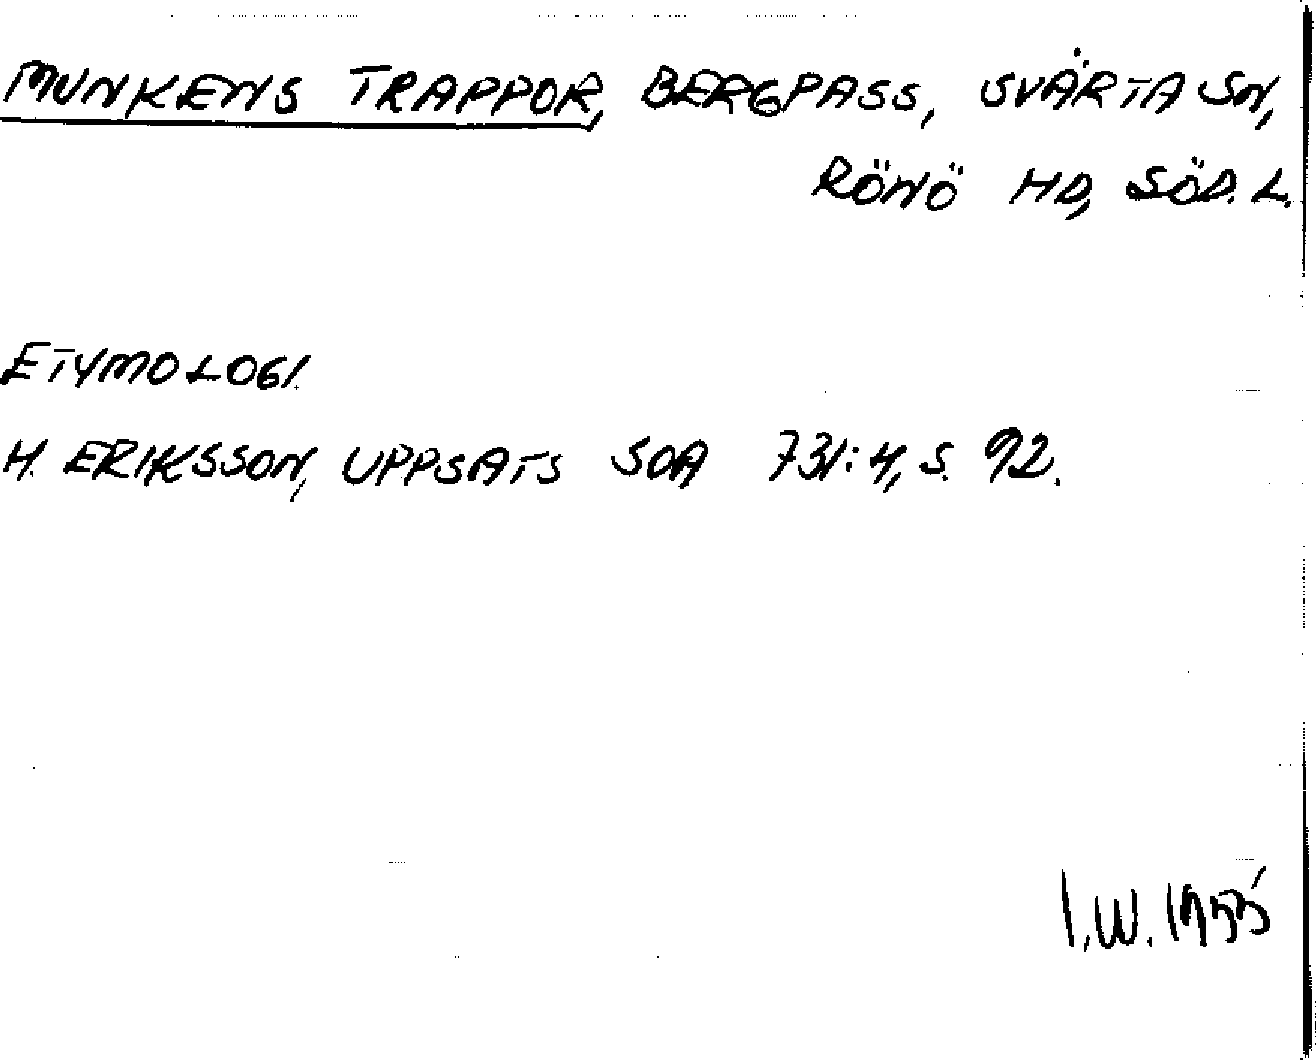 MUNKENS TRAPPOR, BERGPASS, SVÄRTA SN,
RÖNÖ HD, SÖD. L.
ETYMOLOGI.
H. ERIKSSON, UPPSATS SOA 731:4, S. 92.
I.W. 1955